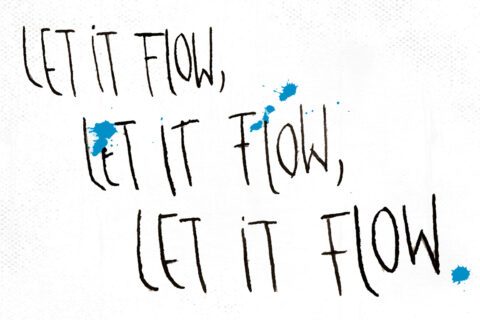 LET iT FLOW,
LeT IT FLOW,
LET iT FLOW.